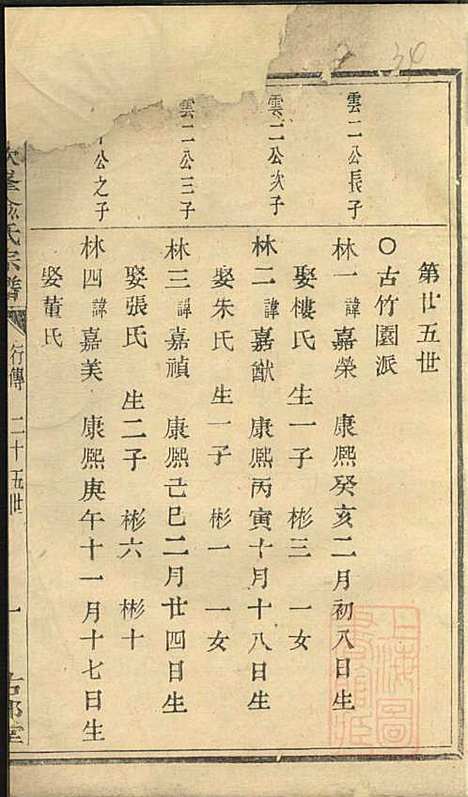 第廿五世
〇古竹園派
雲二公長子
林一諱嘉榮 康熙癸亥二月初八日生
娶樓氏 生一子 彬三 一女
雲二公次子
林二諱嘉猷 康熙丙寅十月十八日生
娶朱氏 生一子 彬一 一女
雲二公三子
林三諱嘉禎 康熙己巳二月廿四日生
娶張氏 生二子 彬六 彬十
公之子
林四諱嘉美 康熙庚午十一月十七日生
娶董氏
峯俞氏宗譜 行傳 二十五世 一
上海圖
34